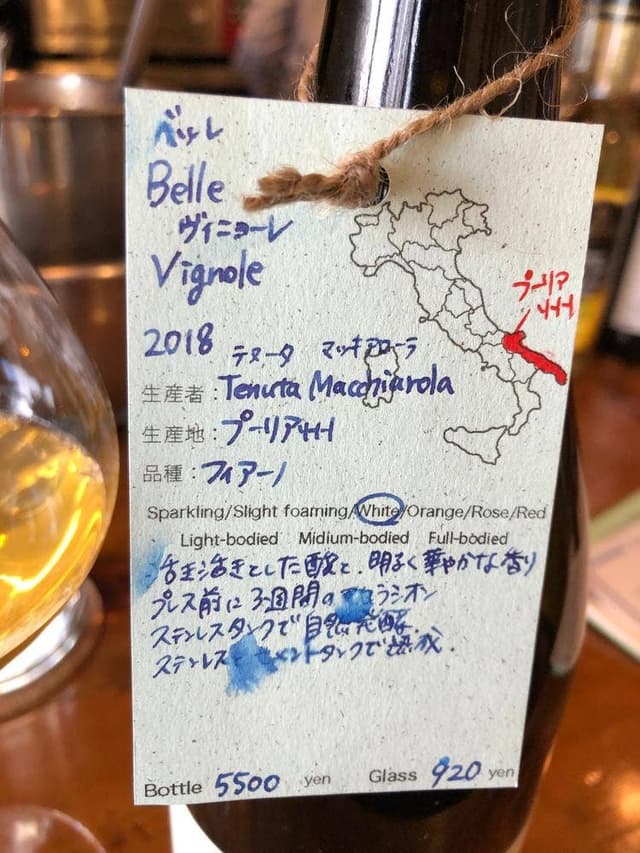 ベッレ
Belle
ヴィニョーレ
Vignole
プーリア
州
2018
テヌータ マッキアローラ
生産者:Tenuta Macchiarola
生産地:プーリア州
品種:フィアーノ
Sparkling/Slight foaming/White/Orange/Rose/Red
Light-bodied Midium-bodied Full-bodied
活き活きとした酸と、明るく華やかな香り
プレス前に3週間の ラシオン
ステンレスタンクで自然発酵
ステンレス ントタンクで熟成.
Bottle 5500 yen Glass 920 yen